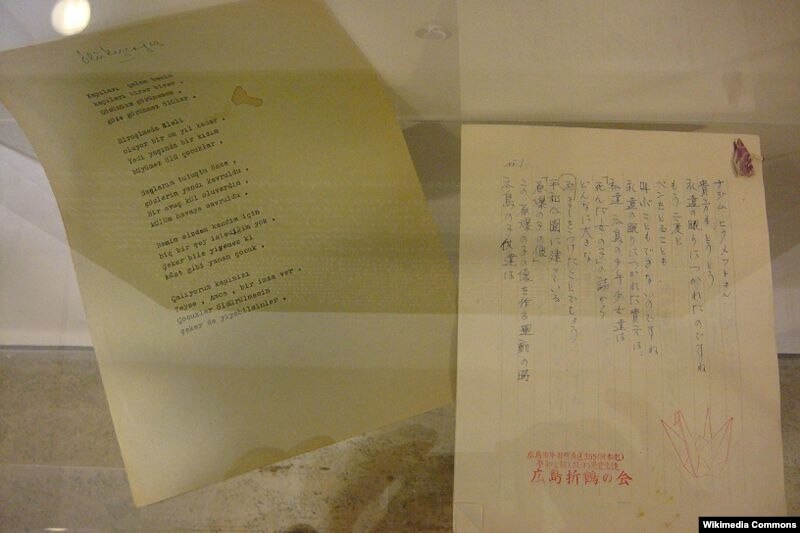 Kapıları çalan benim
kapıları birer birer .
Gözünüze görünemem ,
göze görünmez ölüler .
Hiroşimada öleli
oluyor bir on yıl kadar .
Yedi yaşında bir kızım
büyümez ölü çocuklar .
Saçlarım tutuştu önce ,
gözlerim yandı kavruldu .
Bir avuç kül oluverdim ,
külüm havaya savruldu .
Benim sizden kendim için
hiç bir şey istediğim yok .
Şeker bile yiyemez ki
kâat gibi yanan çocuk .
Çalıyorum kapınızı
Teyze , Amca , bir imza ver .
Çocuklar öldürülmesin
şeker de yiyebilsinler .
No.1
ナジム ヒクメットさん
貴方も、とうとう
永遠の眠りにつかれたのですね
もう二度と
ペンをとることも
叫ぶこともできないのですね
永遠の眠りにつかれた貴方は、
私達 広島の少年少女達は
「死んだ女の子」の詩から
どんなに大きな
励ましをうけたことでしょう
平和公園に建っている
「原爆の子の像」
この原爆の子の像を作る運動の時
広島の子供達は
広島折鶴の会
Wikimedia Commons